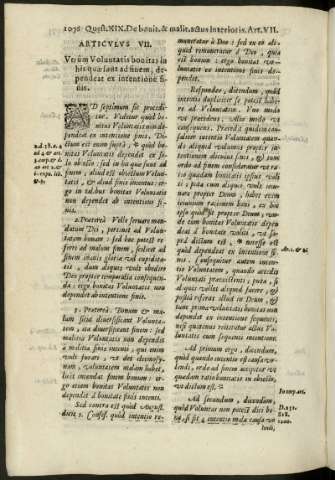 1096 Quæst. XIX. De bonit. & malit. actus interioris. Art. VII.
ARTICVLVS VII.
Vtrùm Voluntatis bonitas in
his quæ sunt ad finem, de-
pendeat ex intentione fi-
nis.
AD septimum sic procedi-
tur. Videtur quòd bo-
nitas Voluntatis non depēdeat
ex intentione finis. Di-
ctum est enim suprà, quòd bo-
nitas Voluntatis dependet ex so-
lo obiecto: sed in his quæ sunt ad
finem, aliud est obiectum Volun-
tatis, & aliud finis intentus: er-
go in talibus bonitas Voluntatis
non dependet ab intentione fi-
nis.
2. Præterea. Velle seruare man-
datum Dei, pertinet ad Volun-
tatem bonam: sed hoc potest re-
ferri ad malum finem, scilicet ad
finem inanis gloriæ vel cupidita-
tis, dum aliquis vult obedire
Deo propter temporalia consequen-
da: ergo bonitas Voluntatis non
dependet ab intentione finis.
3. Præterea. Bonum & ma-
lum sicut diuersificant Volunta-
tem, ita diuersificant finem: sed
malitia Voluntatis non dependet
à malitia finis intenti, qui enim
vult furari, vt det eleemosynam,
voluntatem malam habet,
licèt intendat finem bonum: er-
go etiam bonitas Voluntatis non
dependet à bonitate finis intenti.
Sed contra est quod August.
dicit 9. Confess. quòd intentio re-
muneratur à Deo: sed ex eo ali-
quid remuneratur à Deo, quia
est bonum: ergo bonitas vo-
luntatis ex intentione finis de-
pendet.
Respondeo, dicendum, quòd
intentio dupliciter se potest ha-
bere ad Voluntatem. Vno modo
vt præcedens; alio modo vt
consequens. Præcedit quidem cau-
saliter intentio Voluntatem quan-
do aliquid volumus propter
intentionem alicuius finis, & tunc
ordo ad finem consideratur vt ra-
tio quædam bonitatis ipsius vo-
liti; puta cùm aliquis vult ieiu-
nare propter Deum, habet enim
ieiunium rationem boni, ex hoc
ipso quòd fit propter Deum, vn-
de cùm bonitas voluntatis depen-
deat à bonitate voliti, vt su-
prà dictum est, necesse est
quòd dependeat ex intentione fi-
nis. Consequitur autem inten-
tio Voluntatem, quando accedit
Voluntati præexistenti; puta, si
aliquis velit aliquid facere, &
postea referat illud in Deum, &
tunc primæ voluntatis bonitas non
dependet ex intentione sequenti,
nisi quatenus reiteratur actus Vo-
luntatis cum sequenti intentione.
Ad primum ergo, dicendum,
quòd quando intentio est causa vo-
lendi, ordo ad finem accipitur vt
quædam ratio bonitatis in obiecto,
vt dictum est.
Ad secundum, dicendum,
quòd Voluntas non potest dici bo-
na, si sit intentio mala causa vo-
lendi,